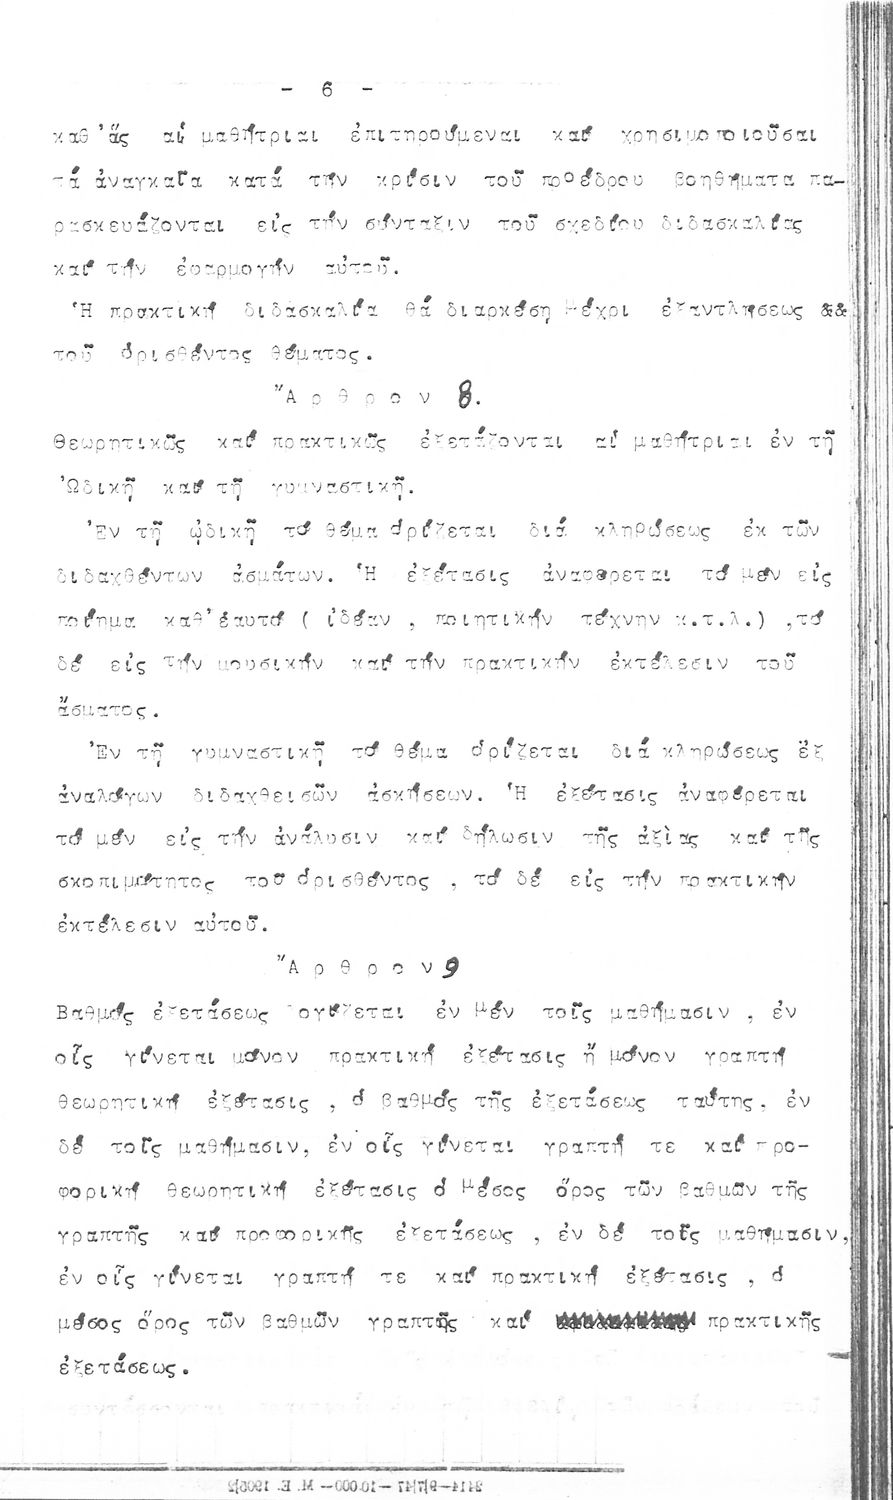 - 6 -
καθ'ἅς αἱ μαθήτριαι ἐπιτηρούμεναι καί χρησιμοποιοῦσαι
τά ἀναγκαῖα κατά τήν κρίσιν τοῦ προέδρου βοηθήματα πα-
ρασκευάζονται εἰς τήν σύνταξιν τοῦ σχεδίου διδασκαλίας
καί τήν ἐφαρμογήν αὐτοῦ.
Ἡ πρακτική διδασκαλία θά διαρκέσῃ μέχρι ἐξαντλήσεως &&
τοῦ ὁρισθέντος θέματος.
Ἄ ρ θ ρ ο ν 8.
Θεωρητικῶς καί πρακτικῶς ἐξετάζονται αἱ μαθήτριαι ἐν τῇ
Ὠδικῇ καί τῇ γυμναστικῇ.
Ἐν τῇ ᾠδικῇ τό θέμα ὁρίζεται διά κληρώσεως ἐκ τῶν
διδαχθέντων ἀσμάτων. Ἡ ἐξέτασις ἀναφέρεται τό μέν εἰς
ποίημα καθ'ἑαυτό ( ἰδέαν , ποιητικήν τέχνην κ.τ.λ.) ,τό
δέ εἰς τήν μουσικήν καί τήν πρακτικήν ἐκτέλεσιν τοῦ
ἄσματος.
Ἐν τῇ γυμναστικῇ τό θέμα ὁρίζεται διά κληρώσεως ἐξ
ἀναλόγων διδαχθεισῶν ἀσκήσεων. Ἡ ἐξέτασις ἀναφέρεται
τό μέν εἰς τήν ἀνάλυσιν καί δήλωσιν τῆς ἀξίας καί τῆς
σκοπιμότητος τοῦ ὁρισθέντος , τό δέ εἰς τήν πρακτικήν
ἐκτέλεσιν αὐτοῦ.
Ἄ ρ θ ρ ο ν 9
Βαθμός ἐξετάσεως λογίζεται ἐν μέν τοῖς μαθήμασιν , ἐν
οἷς γίνεται μόνον πρακτική ἐξέτασις ἤ μόνον γραπτή
θεωρητική ἐξέτασις , ὁ βαθμός τῆς ἐξετάσεως ταύτης, ἐν
δέ τοῖς μαθήμασιν, ἐν οἷς γίνεται γραπτή τε καί προ-
φορική θεωρητική ἐξέτασις ὁ μέσος ὅρος τῶν βαθμῶν τῆς
γραπτῆς καί προφορικῆς ἐξετάσεως , ἐν δέ τοῖς μαθήμασιν,
ἐν οἷς γίνεται γραπτή τε καί πρακτική ἐξέτασις , ὁ
μέσος ὅρος τῶν βαθμῶν γραπτῆς καί πρακτικῆς
ἐξετάσεως.